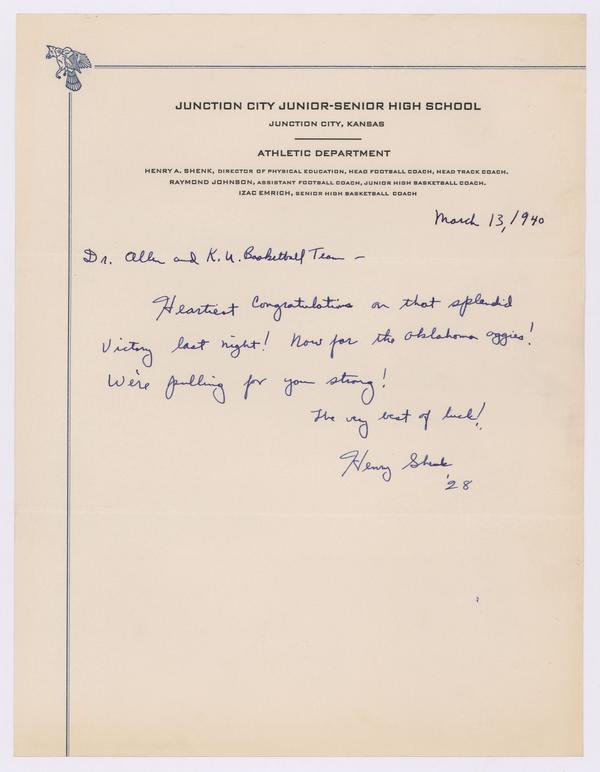 JUNCTION CITY JUNIOR-SENIOR HIGH SCHOOL
JUNCTION CITY, KANSAS
ATHLETIC DEPARTMENT
HENRY A. SHENK, DIRECTOR OF PHYSICAL EDUCATION, HEAD FOOTBALL COACH, HEAD TRACK COACH.
RAYMOND JOHNSON, ASSISTANT FOOTBALL COACH, JUNIOR HIGH BASKETBALL COACH.
IZAC EMRICH, SENIOR HIGH BASKETBALL COACH
March 13, 1940
Dr. Allen and K. U. Basketball Team –
Heartiest Congratulations on that splendid
Victory last night! Now for the Oklahoma Aggies!
We're pulling for you strong!
The very best of luck!
Henry Shenk
'28